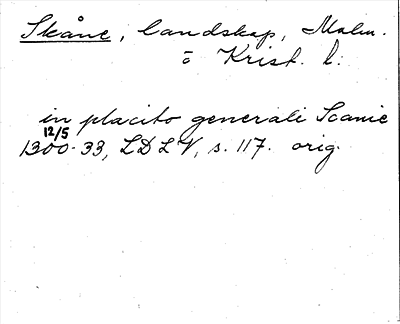 Skåne, landskap, Malm.
o Krist. l:
in placito generali Scanie
12/5
1300-33, LDLV, s. 117. orig.